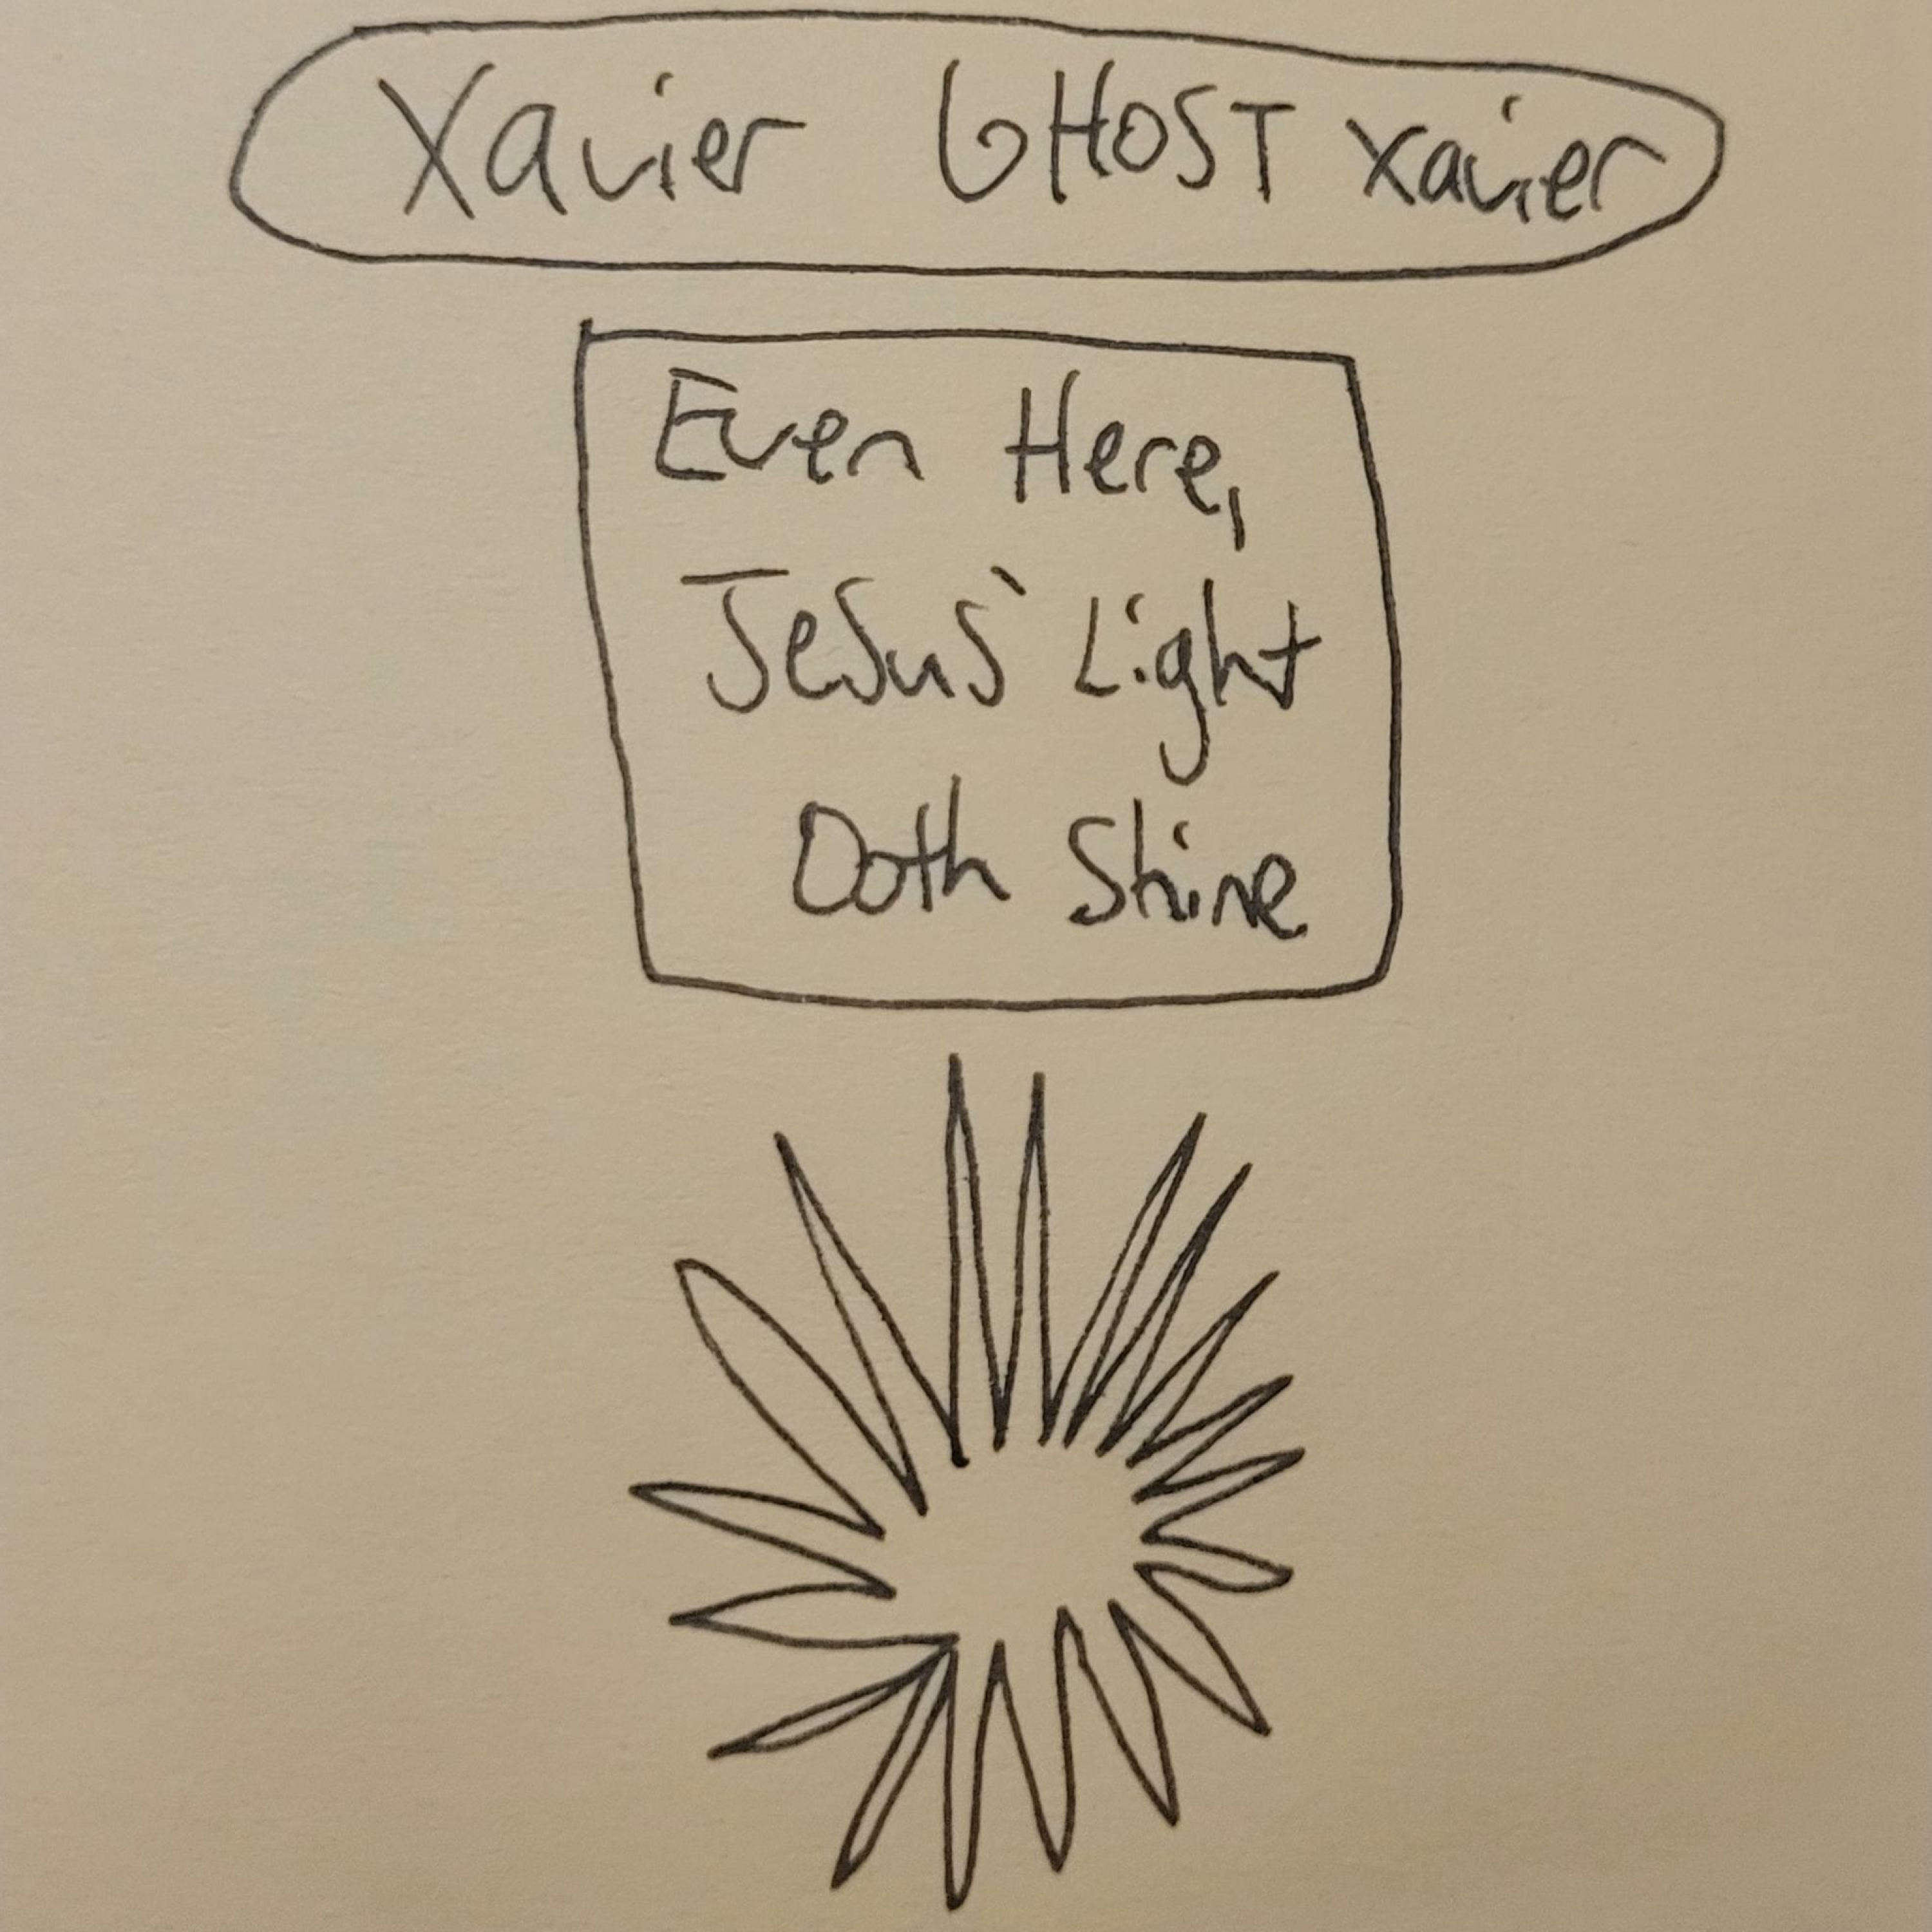 Xavier GHOST Xavier
Even Here,
Jesus' Light
Doth Shine